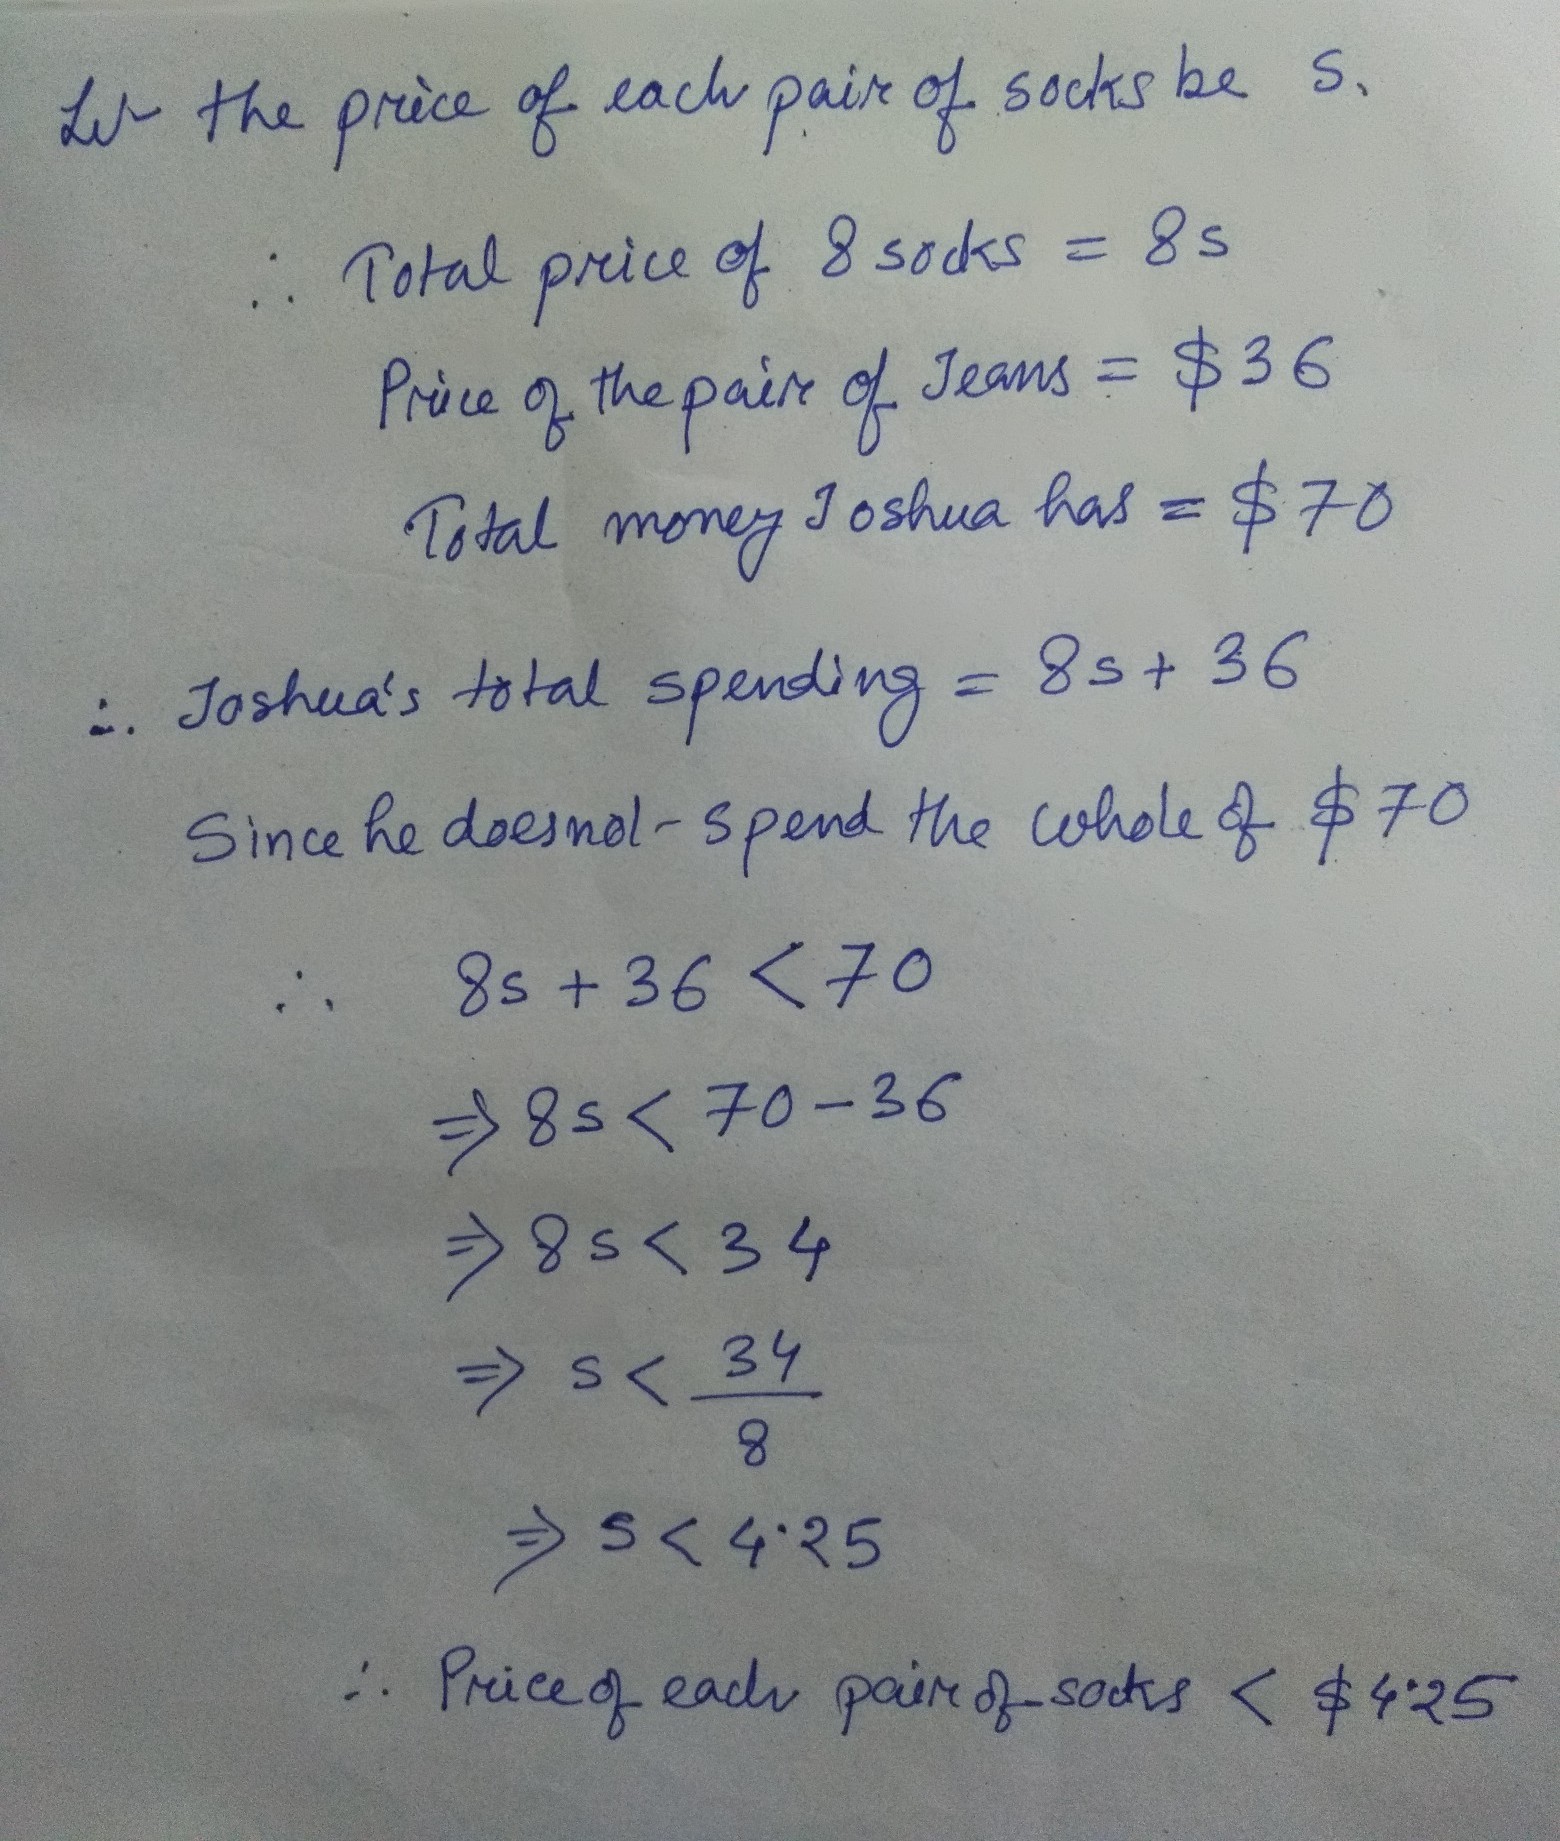 Let the price of each pair of socks be s.
∴ Total price of 8 socks = 8s
Price of the pair of Jeans = $36
Total money Joshua has = $70
∴ Joshua's total spending = 8s + 36
Since he does not spend the whole of $70
∴ 8s + 36 < 70
⇒ 8s < 70 - 36
⇒ 8s < 34
⇒ s < 34
8
⇒ s < 4.25
∴ Price of each pair of socks < $4.25